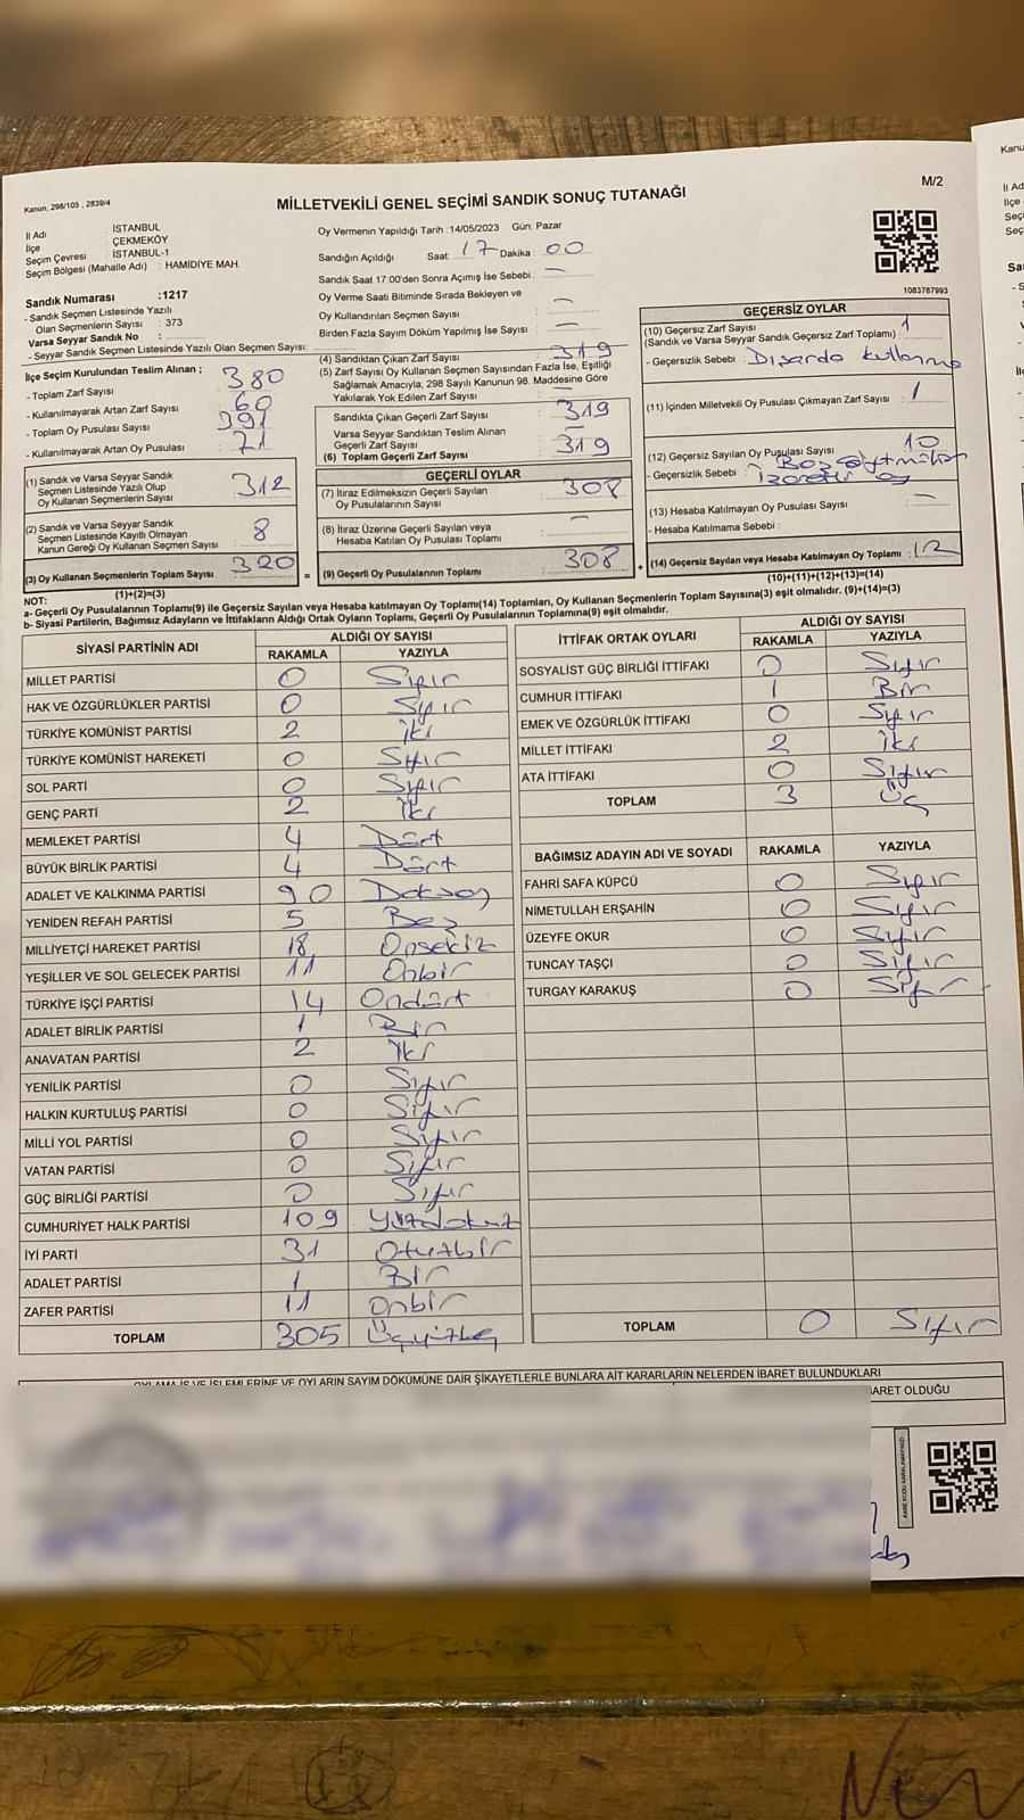 Kanun: 298/105, 2839/4
MİLLETVEKİLİ GENEL SEÇİMİ SANDIK SONUÇ TUTANAĞI
M/2
İl Adı İSTANBUL
İlçe ÇEKMEKÖY
Seçim Çevresi İSTANBUL-1
Seçim Bölgesi (Mahalle Adı) : HAMİDİYE MAH.
Sandık Numarası :1217
- Sandık Seçmen Listesinde Yazılı
Olan Seçmenlerin Sayısı : 373
Varsa Seyyar Sandık No :
- Seyyar Sandık Seçmen Listesinde Yazılı Olan Seçmen Sayısı:
Oy Vermenin Yapıldığı Tarih :14/05/2023 Gün: Pazar
Sandığın Açıldığı Saat: 17 Dakika: 00
Sandık Saat 17:00'den Sonra Açımış İse Sebebi : —
Oy Verme Saati Bitiminde Sırada Bekleyen ve
Oy Kullandırılan Seçmen Sayısı : —
Birden Fazla Sayım Döküm Yapılmış İse Sayısı : —
1083787993
İlçe Seçim Kurulundan Teslim Alınan :
- Toplam Zarf Sayısı 380
- Kullanılmayarak Artan Zarf Sayısı 60
- Toplam Oy Pusulası Sayısı 391
- Kullanılmayarak Artan Oy Pusulası 71
(1) Sandık ve Varsa Seyyar Sandık
Seçmen Listesinde Yazılı Olup
Oy Kullanan Seçmenlerin Sayısı 312
(2) Sandık ve Varsa Seyyar Sandık
Seçmen Listesinde Kayıtlı Olmayan
Kanun Gereği Oy Kullanan Seçmen Sayısı 8
(3) Oy Kullanan Seçmenlerin Toplam Sayısı 320
(1)+(2)=(3)
(4) Sandıktan Çıkan Zarf Sayısı : 319
(5) Zarf Sayısı Oy Kullanan Seçmen Sayısından Fazla İse, Eşitliği
Sağlamak Amacıyla, 298 Sayılı Kanunun 98. Maddesine Göre
Yakılarak Yok Edilen Zarf Sayısı : —
Sandıkta Çıkan Geçerli Zarf Sayısı : 319
Varsa Seyyar Sandıktan Teslim Alınan
Geçerli Zarf Sayısı —
(6) Toplam Geçerli Zarf Sayısı : 319
GEÇERLİ OYLAR
(7) İtiraz Edilmeksizin Geçerli Sayılan
Oy Pusulalarının Sayısı : 308
(8) İtiraz Üzerine Geçerli Sayılan veya
Hesaba Katılan Oy Pusulası Toplamı : —
= (9) Geçerli Oy Pusulalarının Toplamı : 308 +
GEÇERSİZ OYLAR
(10) Geçersiz Zarf Sayısı : 1
(Sandık ve Varsa Seyyar Sandık Geçersiz Zarf Toplamı)
- Geçersizlik Sebebi : Dışarda kullanma
(11) İçinden Milletvekili Oy Pusulası Çıkmayan Zarf Sayısı : 1
(12) Geçersiz Sayılan Oy Pusulası Sayısı : 10
- Geçersizlik Sebebi : Boş
oy
(13) Hesaba Katılmayan Oy Pusulası Sayısı : —
- Hesaba Katılmama Sebebi :
(14) Geçersiz Sayılan veya Hesaba Katılmayan Oy Toplamı : 12
(10)+(11)+(12)+(13)=(14)
NOT:
a- Geçerli Oy Pusulalarının Toplamı(9) ile Geçersiz Sayılan veya Hesaba katılmayan Oy Toplamı(14) Toplamları, Oy Kullanan Seçmenlerin Toplam Sayısına(3) eşit olmalıdır. (9)+(14)=(3)
b- Siyasi Partilerin, Bağımsız Adayların ve İttifakların Aldığı Ortak Oyların Toplamı, Geçerli Oy Pusulalarının Toplamına(9) eşit olmalıdır.
SİYASİ PARTİNİN ADI ALDIĞI OY SAYISI
RAKAMLA YAZIYLA
MİLLET PARTİSİ 0 Sıfır
HAK VE ÖZGÜRLÜKLER PARTİSİ 0 Sıfır
TÜRKİYE KOMÜNİST PARTİSİ 2 İki
TÜRKİYE KOMÜNİST HAREKETİ 0 Sıfır
SOL PARTİ 0 Sıfır
GENÇ PARTİ 2 İki
MEMLEKET PARTİSİ 4 Dört
BÜYÜK BİRLİK PARTİSİ 4 Dört
ADALET VE KALKINMA PARTİSİ 90 Doksan
YENİDEN REFAH PARTİSİ 5 Beş
MİLLİYETÇİ HAREKET PARTİSİ 18 Onsekiz
YEŞİLLER VE SOL GELECEK PARTİSİ 11 Onbir
TÜRKİYE İŞÇİ PARTİSİ 14 Ondört
ADALET BİRLİK PARTİSİ 1 Bir
ANAVATAN PARTİSİ 2 İki
YENİLİK PARTİSİ 0 Sıfır
HALKIN KURTULUŞ PARTİSİ 0 Sıfır
MİLLİ YOL PARTİSİ 0 Sıfır
VATAN PARTİSİ 0 Sıfır
GÜÇ BİRLİĞİ PARTİSİ 0 Sıfır
CUMHURİYET HALK PARTİSİ 109 Yüzdokuz
İYİ PARTİ 31 Otuzbir
ADALET PARTİSİ 1 Bir
ZAFER PARTİSİ 11 Onbir
TOPLAM 305 Üçyüzbeş
İTTİFAK ORTAK OYLARI ALDIĞI OY SAYISI
RAKAMLA YAZIYLA
SOSYALİST GÜÇ BİRLİĞİ İTTİFAKI 0 Sıfır
CUMHUR İTTİFAKI 1 Bir
EMEK VE ÖZGÜRLÜK İTTİFAKI 0 Sıfır
MİLLET İTTİFAKI 2 İki
ATA İTTİFAKI 0 Sıfır
TOPLAM 3 Üç
BAĞIMSIZ ADAYIN ADI VE SOYADI RAKAMLA YAZIYLA
FAHRİ SAFA KÜPCÜ 0 Sıfır
NİMETULLAH ERŞAHİN 0 Sıfır
ÜZEYFE OKUR 0 Sıfır
TUNCAY TAŞÇI 0 Sıfır
TURGAY KARAKUŞ 0 Sıfır
TOPLAM 0 Sıfır
OYLAMA İŞ VE İŞLEMLERİNE VE OYLARIN SAYIM DÖKÜMÜNE DAİR ŞİKAYETLERLE BUNLARA AİT KARARLARIN NELERDEN İBARET BULUNDUKLARI
ARET OLDUĞU
Kanu
İl Ad
İlçe
Seç
Seç
Sa